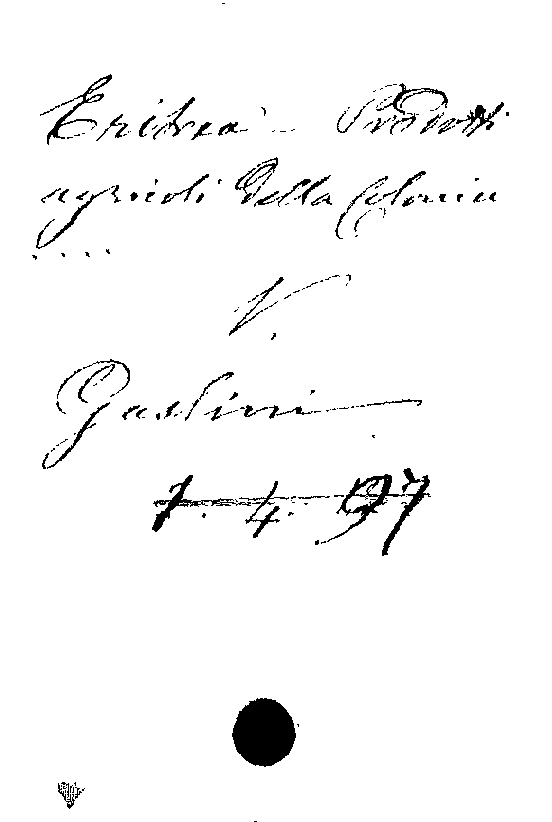 Eritrea - Prodotti
agricoli della Colonia
....
V.
Gastini
1. 4. 97